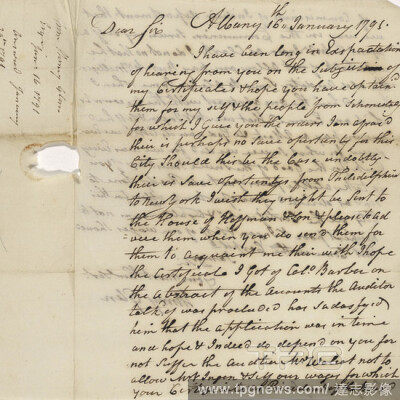 Dear Sir Albany 16th January 1791.
I have been long in Expectation
of hearing from you on the Subject
my Certificates & hope you have optain'd
them for my self & the people from Schonectady
for which I gave you the orders I am afraid
their is perhaps no save opertunity for this
City Should this be the Case undobtly
their is Save opertunitys from Philidelphia
to New York I wish they might be Sent to
the House of Hoffman & Son & please to ad
them when you do send them for
them to acquaint me their with I hope
the Certificate I Got of Colo Barber on
the Abstract of the Accounts the Auditor
talk of was produced has Sadasfyed
him that the application was in time
and hope & Indeed do depend on you for
not Suffer the Auditor Mr. not to
allow Mr. & Self our wages for which
your
Henry Glen
Esqr Jan 16 1791
Answerd January
1791
www.tpgnews.com
達志影像